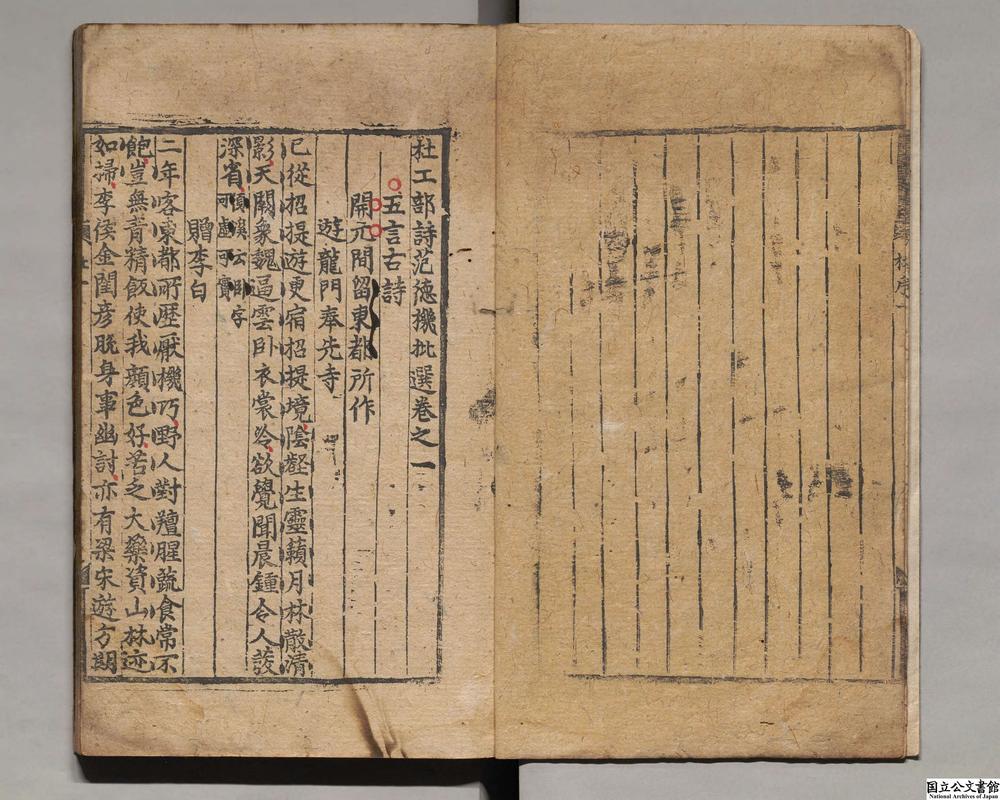 林序
杜工部詩范德機批選卷之一
五言古詩
開元間留東都所作
遊龍門奉先寺
已從招提遊更宿招提境陰壑生靈籟月林散清
影天闕象魏逼雲卧衣裳冷欲覺聞晨鍾令人發
深省須溪云卧字
可虛可實
贈李白
二年客東都所歴厭機巧野人對羶腥蔬食常不
飽豈無青精飯使我顔色好苦乏大藥資山林迹
如掃李侯金閨彦脱身事幽討亦有梁宋遊方期
国立公文書館
National Archives of Japan